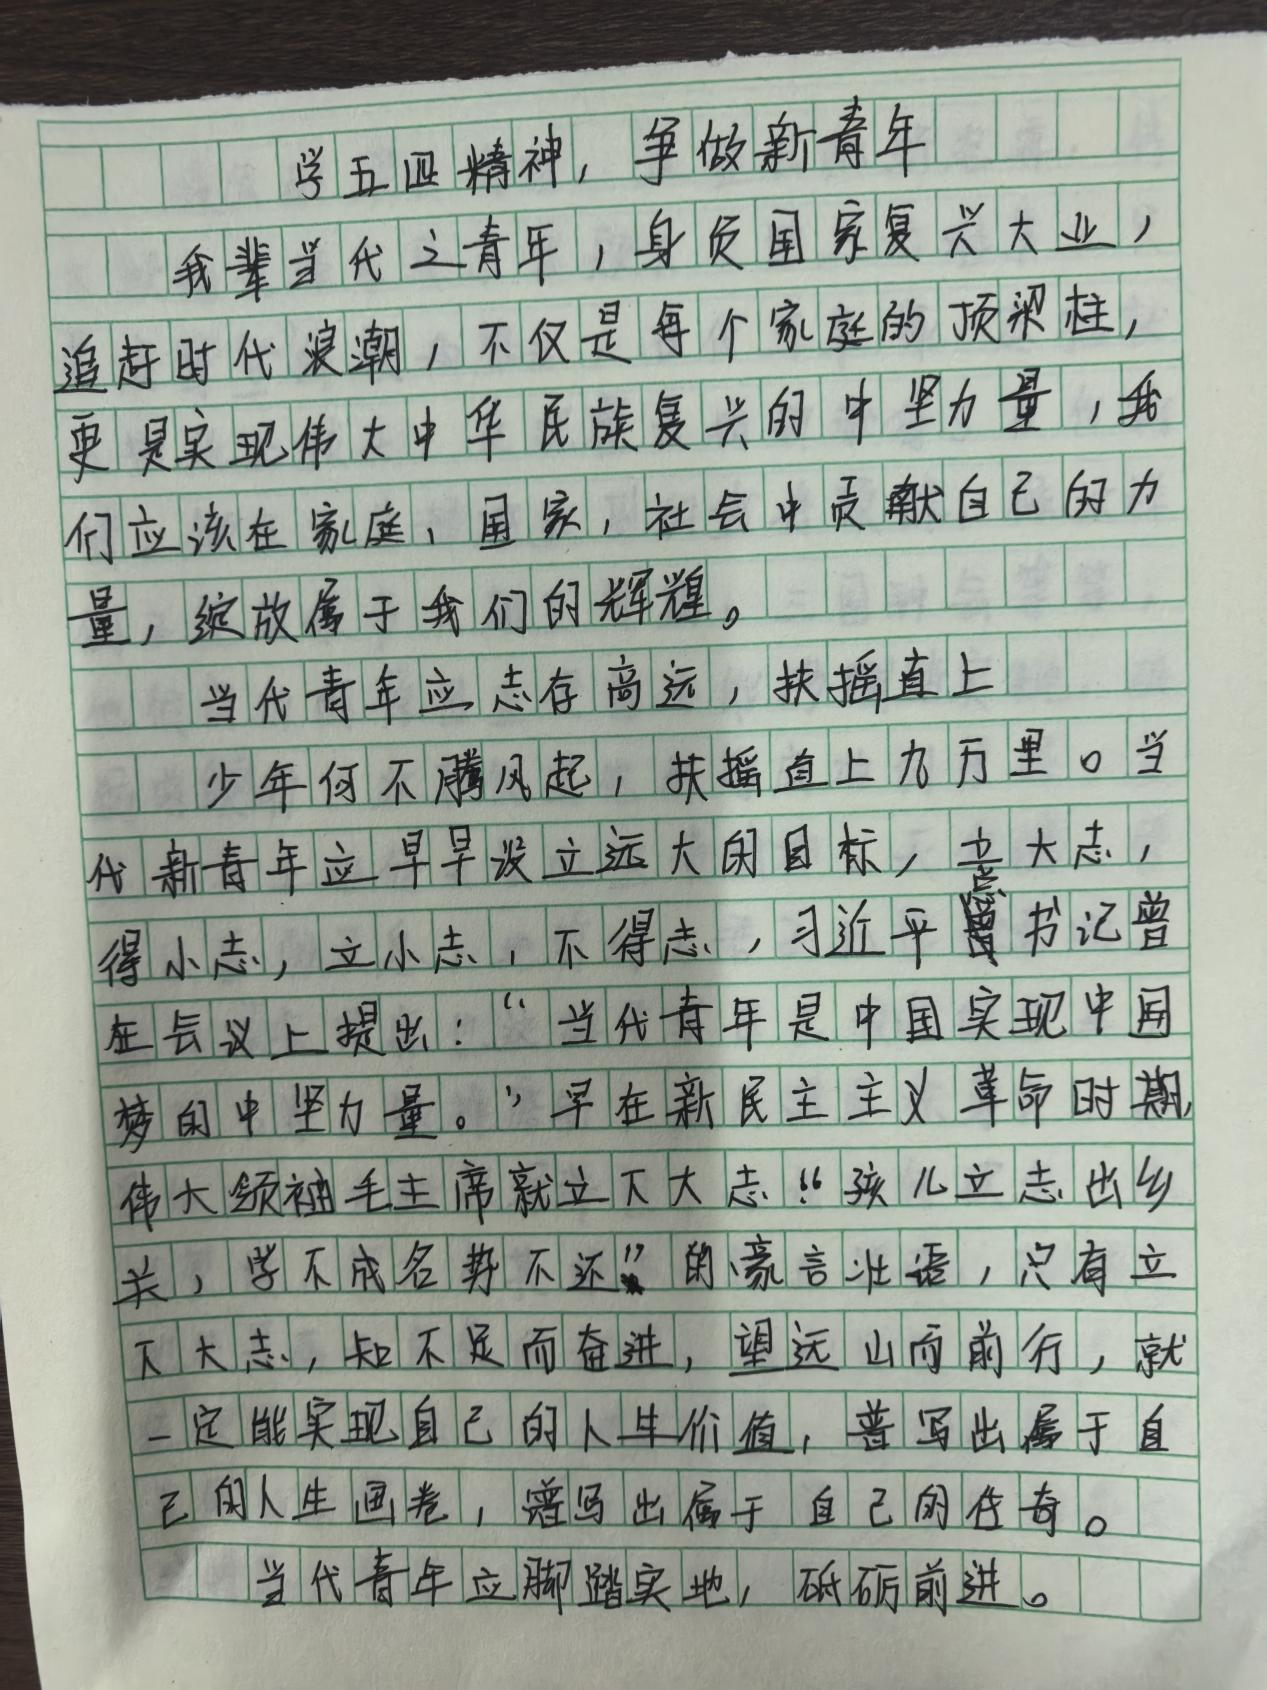 学五四精神，争做新青年
我辈当代之青年，身负国家复兴大业，
追赶时代浪潮，不仅是每个家庭的顶梁柱，
更是实现伟大中华民族复兴的中坚力量，我
们应该在家庭、国家，社会中贡献自己的力
量，绽放属于我们的辉煌。
当代青年应志存高远，扶摇直上
少年何不腾风起，扶摇直上九万里。当
代新青年应早早设立远大的目标，立大志，
得小志，立小志，不得志，习近平总书记曾
在会议上提出：“当代青年是中国实现中国
梦的中坚力量。”早在新民主主义革命时期，
伟大领袖毛主席就立下大志“孩儿立志出乡
关，学不成名势不还”的豪言壮语，只有立
下大志，知不足而奋进，望远山而前行，就
一定能实现自己的人生价值，普写出属于自
己的人生画卷，谱写出属于自己的传奇。
当代青年应脚踏实地，砥砺前进。